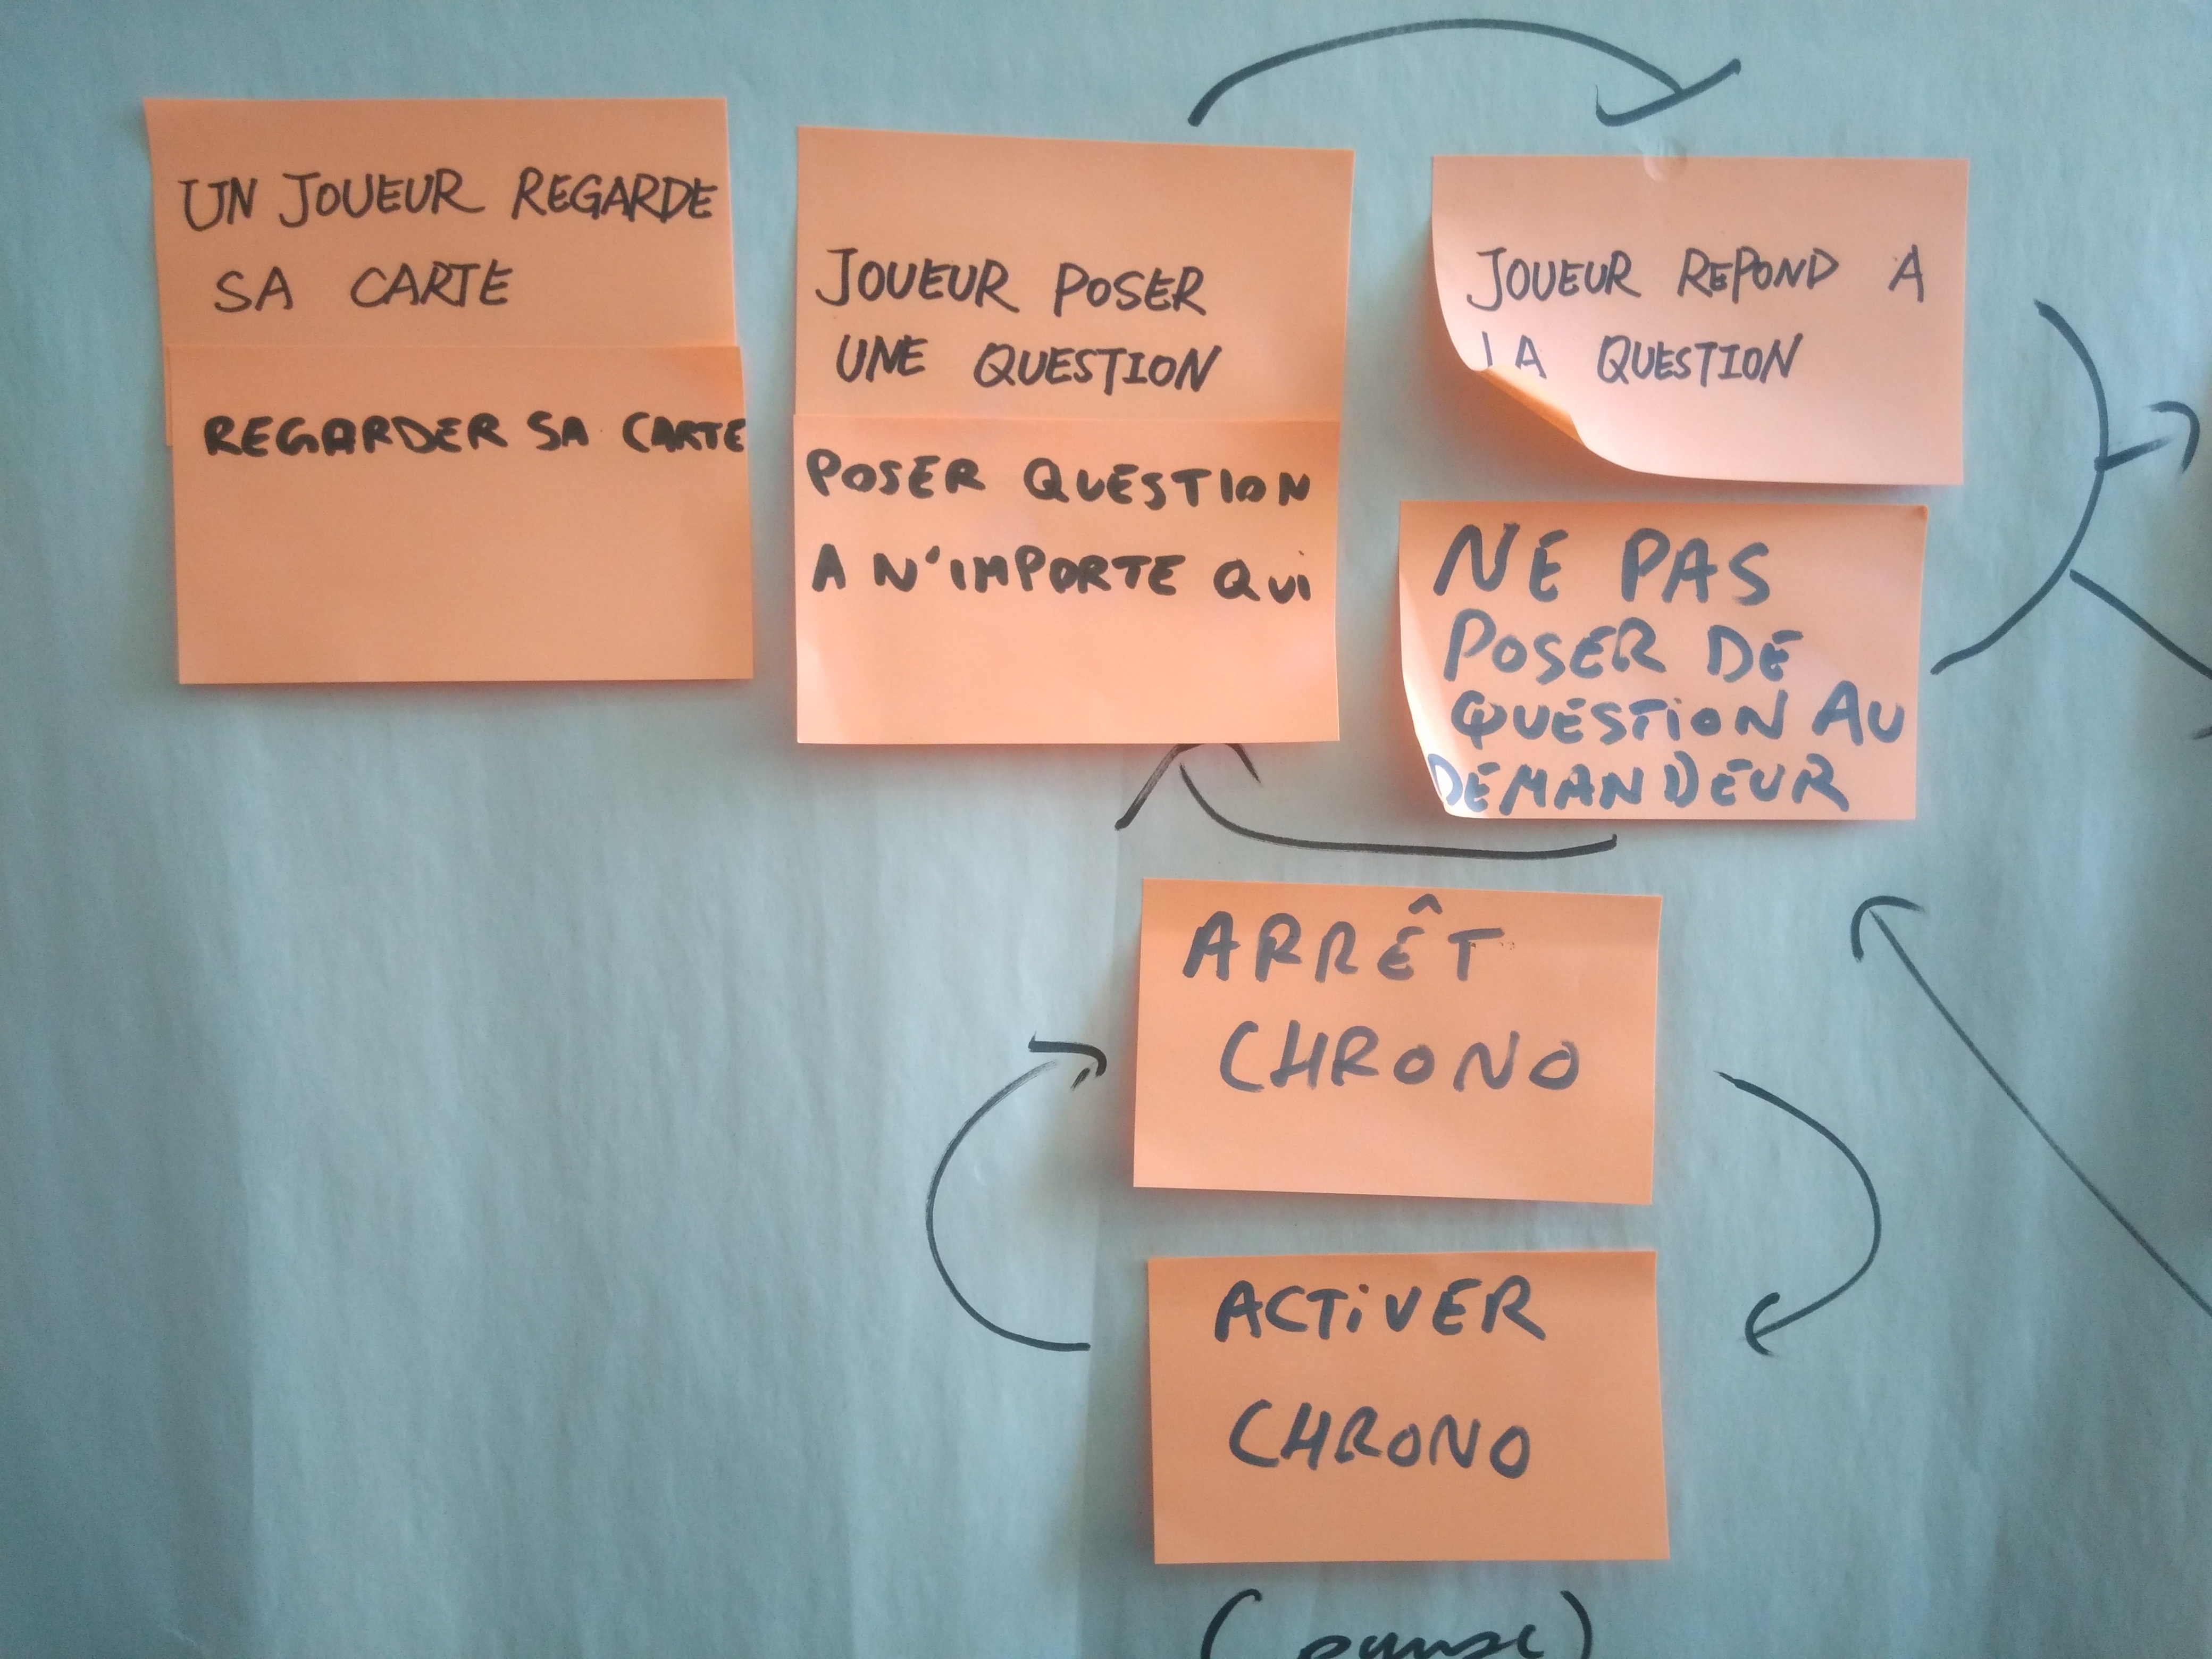 UN JOUEUR REGARDE
SA CARTE
REGARDER SA CARTE
JOUEUR POSER
UNE QUESTION
POSER QUESTION
A N'IMPORTE QUI
JOUEUR REPOND A
LA QUESTION
NE PAS
POSER DE
QUESTION AU
DEMANDEUR
ARRÊT
CHRONO
ACTIVER
CHRONO
(pause)